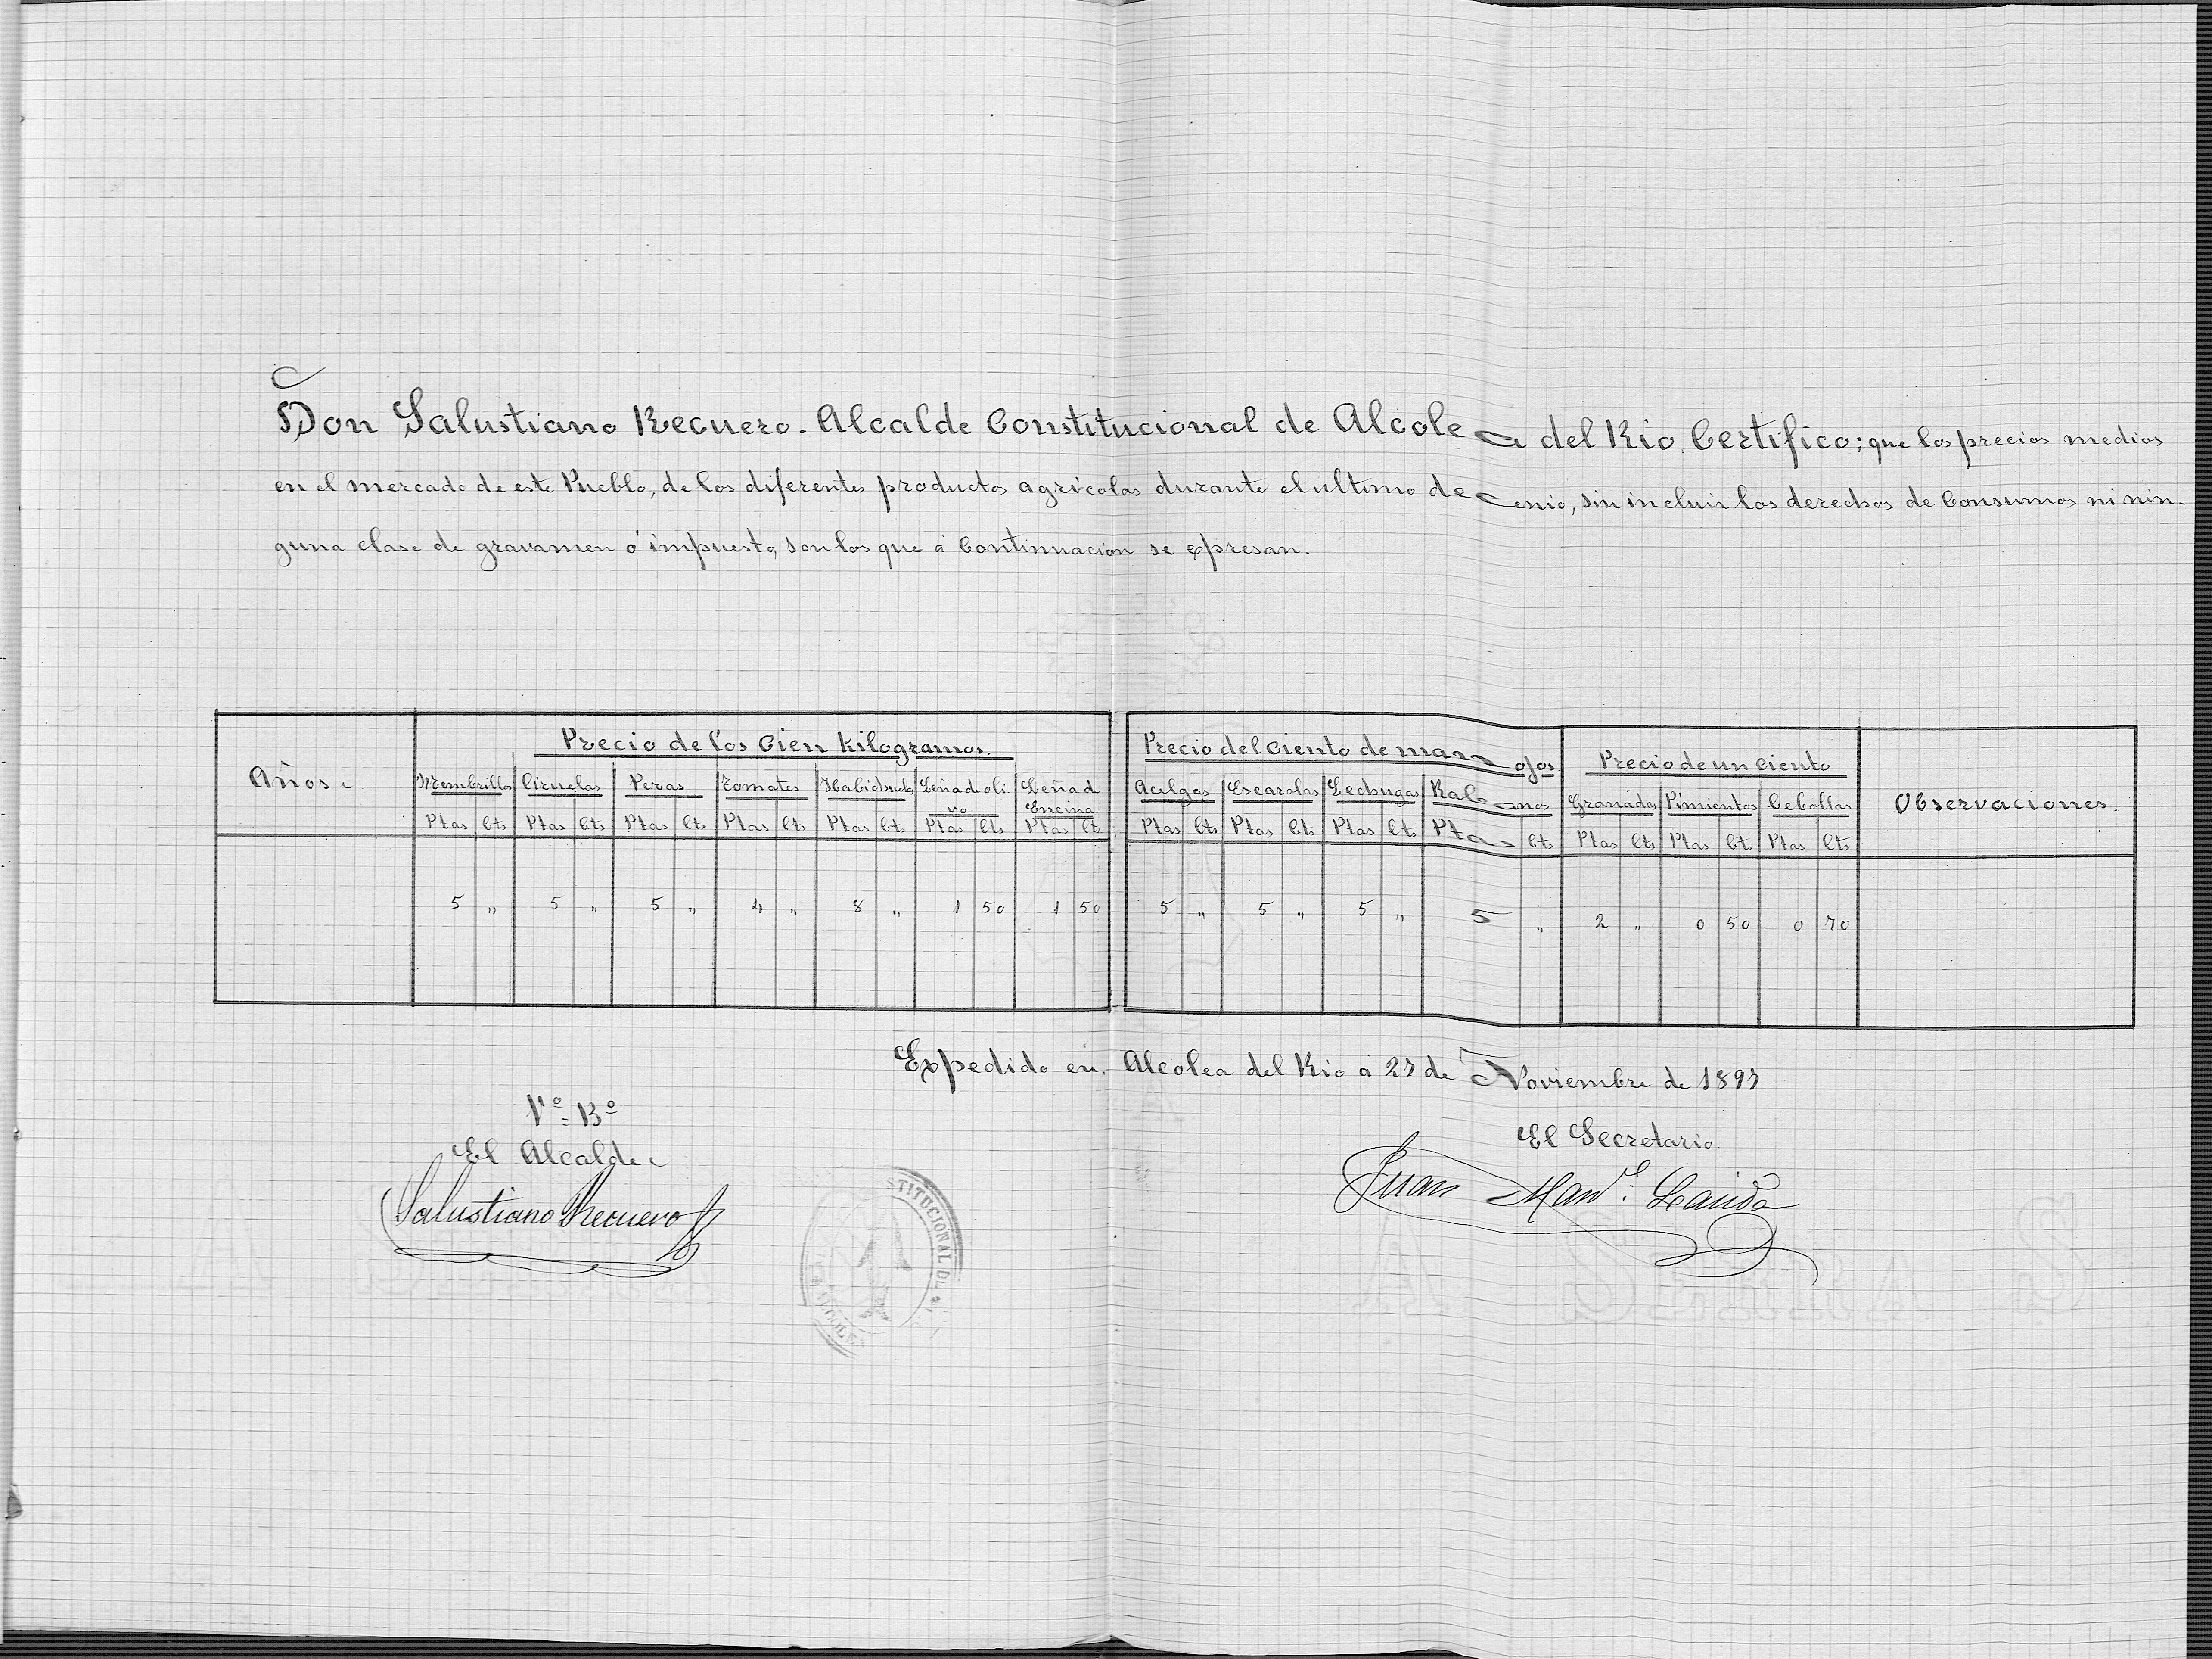 Don Salustiano Recuero. Alcalde Constitucional de Alcolea del Rio. Certifico; que los precios medios
en el mercado de este Pueblo, de los diferentes productos agricolas durante el ultimo decenio, sin incluir los derechos de Consumos ni nin-
guna clase de gravamen ó impuesto, son los que á Continuacion se expresan.
Años. Precio de los Cien Kilogramos. Precio del Ciento de manojos Precio de un Ciento Observaciones.
Membrillos Ciruelas Peras Tomates Habichuels Leña de oli Leña d Aculgas Escarolas Lechugas Rabanos Granadas Pimientos Cebollas
vo. Encina
Ptas Cts Ptas Cts Ptas Cts Ptas Cts Ptas Cts Ptas Cts Ptas Cts Ptas Cts Ptas Cts Ptas Cts Ptas Cts Ptas Cts Ptas Cts Ptas Cts
5 " 5 " 5 " 4 " 8 " 1 50 1 50 5 " 5 " 5 " 5 " 2 " 0 50 0 70
Expedido en Alcolea del Rio á 27 de Noviembre de 1897
Vº Bº
El Alcalde
Salustiano Recuero
STITUCIONAL DE
El Secretario
Juan Man.l